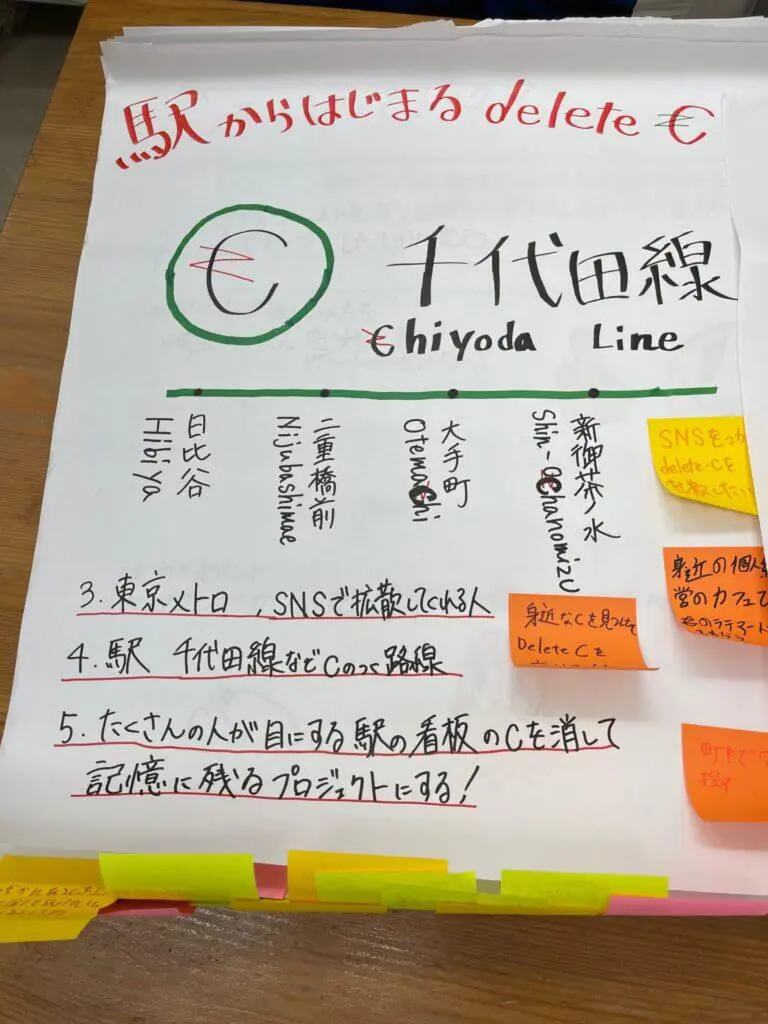 駅からはじまる delete C
C 千代田線
Chiyoda Line
日比谷
Hibiya
二重橋前
Nijubashimae
大手町
Otemachi
新御茶ノ水
Shin-Ochanomizu
3. 東京メトロ , SNSで拡散してくれる人
4. 駅 千代田線などCのつく路線
5. たくさんの人が目にする駅の看板のCを消して
記憶に残るプロジェクトにする!
SNSを
delete-Cを
拡散したい
身近の個人
営のカフェで
身近なCを見つけて
Delete Cを